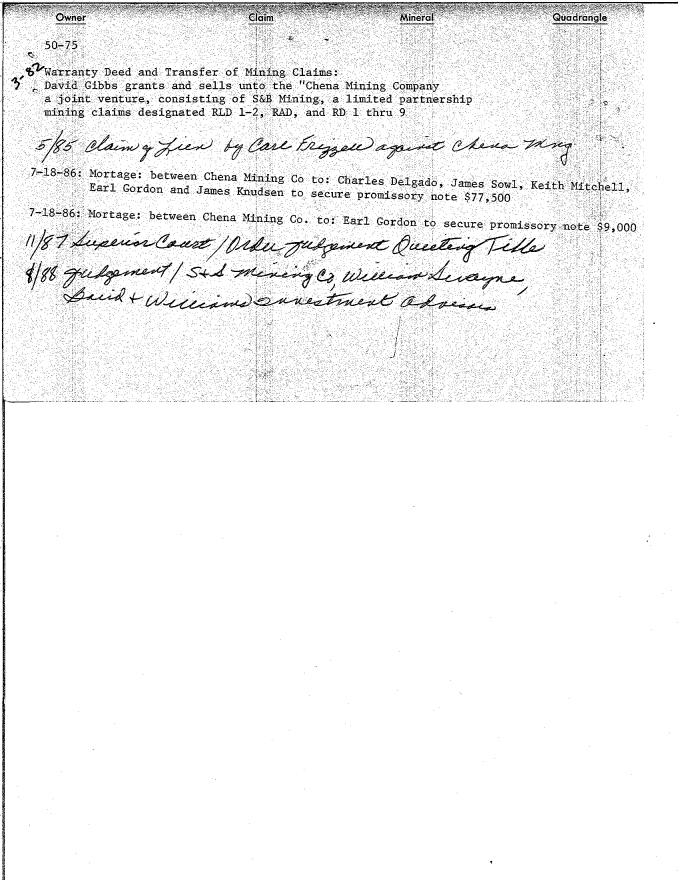 Owner Claim Mineral Quadrangle
50-75
3-82 Warranty Deed and Transfer of Mining Claims:
David Gibbs grants and sells unto the "Chena Mining Company
a joint venture, consisting of S&B Mining, a limited partnership
mining claims designated RLD 1-2, RAD, and RD 1 thru 9
5/85 Claim of Lien by Carl Frizzell against Chena Mng
7-18-86: Mortage: between Chena Mining Co to: Charles Delgado, James Sowl, Keith Mitchell,
Earl Gordon and James Knudsen to secure promissory note $77,500
7-18-86: Mortage: between Chena Mining Co. to: Earl Gordon to secure promissory note $9,000
11/87 Superior Court / Order Judgement Quieting Title
8/88 Judgement / S&S Mining Co, William Swayne,
David & Williams Investment Advisors